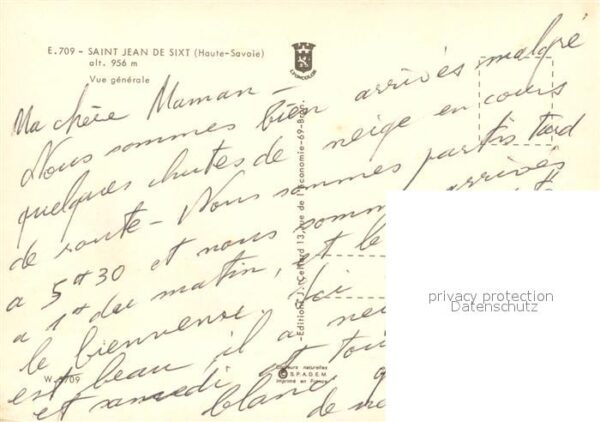 E.709 - SAINT JEAN DE SIXT (Haute-Savoie)
alt. 956 m
Vue générale
LYONCOLOR
Ma chère Maman -
Nous sommes bien arrivés malgré
quelques chutes de neige en cours
de route - Nous sommes partis tard
a 5h30 et nous somm arrivés
a 1h du matin, et le
le bienvenu. Ici
est beau, il a nei
et samedi et tou
blanc
de
Editions J. Cellard 13, rue de l'Économie-69-Bron.
Couleurs naturelles
© S.P.A.D.E.M.
Imprimé en France
W 709
privacy protection
Datenschutz